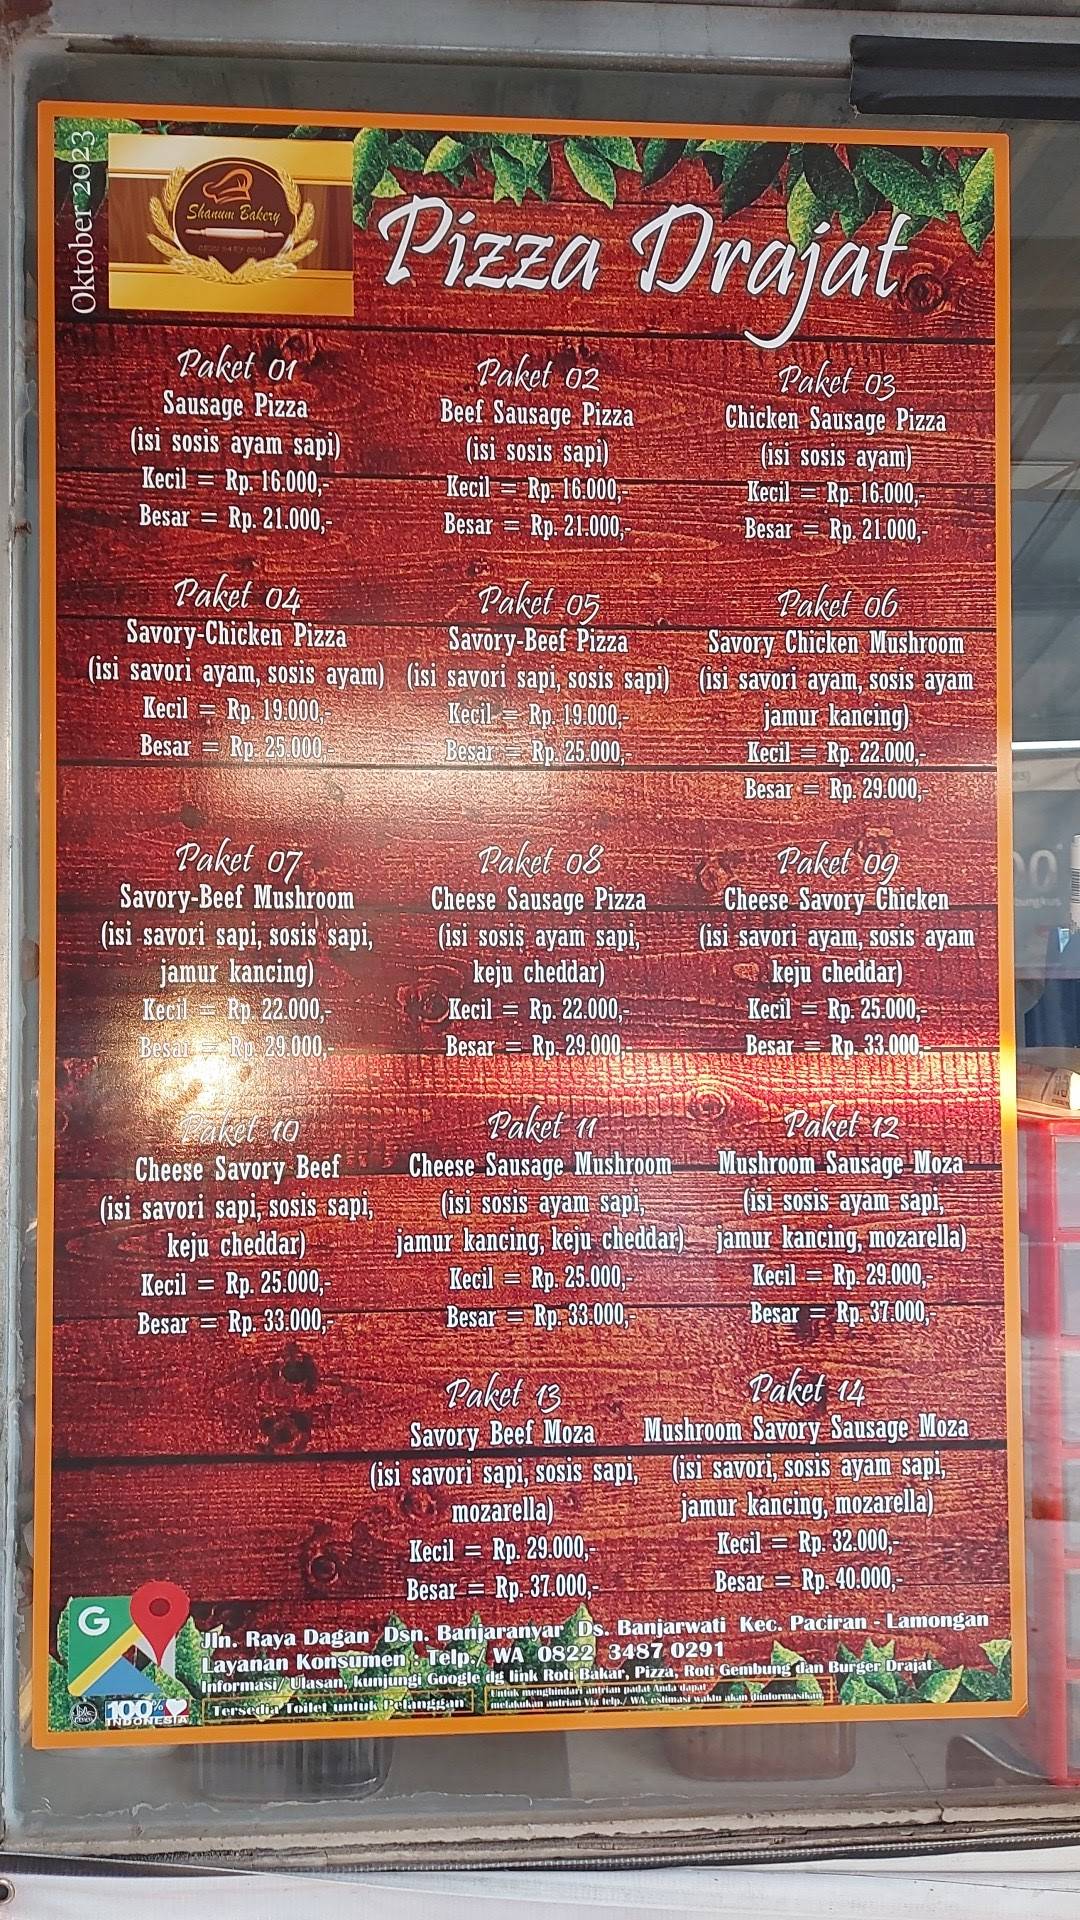 Oktober 2023
Shanum Bakery
Pizza Drajat
Paket 01
Sausage Pizza
(isi sosis ayam sapi)
Kecil = Rp. 16.000,-
Besar = Rp. 21.000,-
Paket 02
Beef Sausage Pizza
(isi sosis sapi)
Kecil = Rp. 16.000,-
Besar = Rp. 21.000,-
Paket 03
Chicken Sausage Pizza
(isi sosis ayam)
Kecil = Rp. 16.000,-
Besar = Rp. 21.000,-
Paket 04
Savory-Chicken Pizza
(isi savori ayam, sosis ayam)
Kecil = Rp. 19.000,-
Besar = Rp. 25.000,-
Paket 05
Savory-Beef Pizza
(isi savori sapi, sosis sapi)
Kecil = Rp. 19.000,-
Besar = Rp. 25.000,-
Paket 06
Savory Chicken Mushroom
(isi savori ayam, sosis ayam
jamur kancing)
Kecil = Rp. 22.000,-
Besar = Rp. 29.000,-
Paket 07
Savory-Beef Mushroom
(isi savori sapi, sosis sapi,
jamur kancing)
Kecil = Rp. 22.000,-
Besar = Rp. 29.000,-
Paket 08
Cheese Sausage Pizza
(isi sosis ayam sapi,
keju cheddar)
Kecil = Rp. 22.000,-
Besar = Rp. 29.000,-
Paket 09
Cheese Savory Chicken
(isi savori ayam, sosis ayam
keju cheddar)
Kecil = Rp. 25.000,-
Besar = Rp. 33.000,-
Paket 10
Cheese Savory Beef
(isi savori sapi, sosis sapi,
keju cheddar)
Kecil = Rp. 25.000,-
Besar = Rp. 33.000,-
Paket 11
Cheese Sausage Mushroom
(isi sosis ayam sapi,
jamur kancing, keju cheddar)
Kecil = Rp. 25.000,-
Besar = Rp. 33.000,-
Paket 12
Mushroom Sausage Moza
(isi sosis ayam sapi,
jamur kancing, mozarella)
Kecil = Rp. 29.000,-
Besar = Rp. 37.000,-
Paket 13
Savory Beef Moza
(isi savori sapi, sosis sapi,
mozarella)
Kecil = Rp. 29.000,-
Besar = Rp. 37.000,-
Paket 14
Mushroom Savory Sausage Moza
(isi savori, sosis ayam sapi,
jamur kancing, mozarella)
Kecil = Rp. 32.000,-
Besar = Rp. 40.000,-
G
Jln. Raya Dagan Dsn. Banjaranyar Ds. Banjarwati Kec. Paciran - Lamongan
Layanan Konsumen : Telp./ WA 0822 3487 0291
Informasi/ Ulasan, kunjungi Google dg link Roti Bakar, Pizza, Roti Gembung dan Burger Drajat
Tersedia Toilet untuk Pelanggan
Untuk menghindari antrian padat Anda dapat
melakukan antrian Via telp./ WA, estimasi waktu akan diinformasikan.
100% INDONESIA